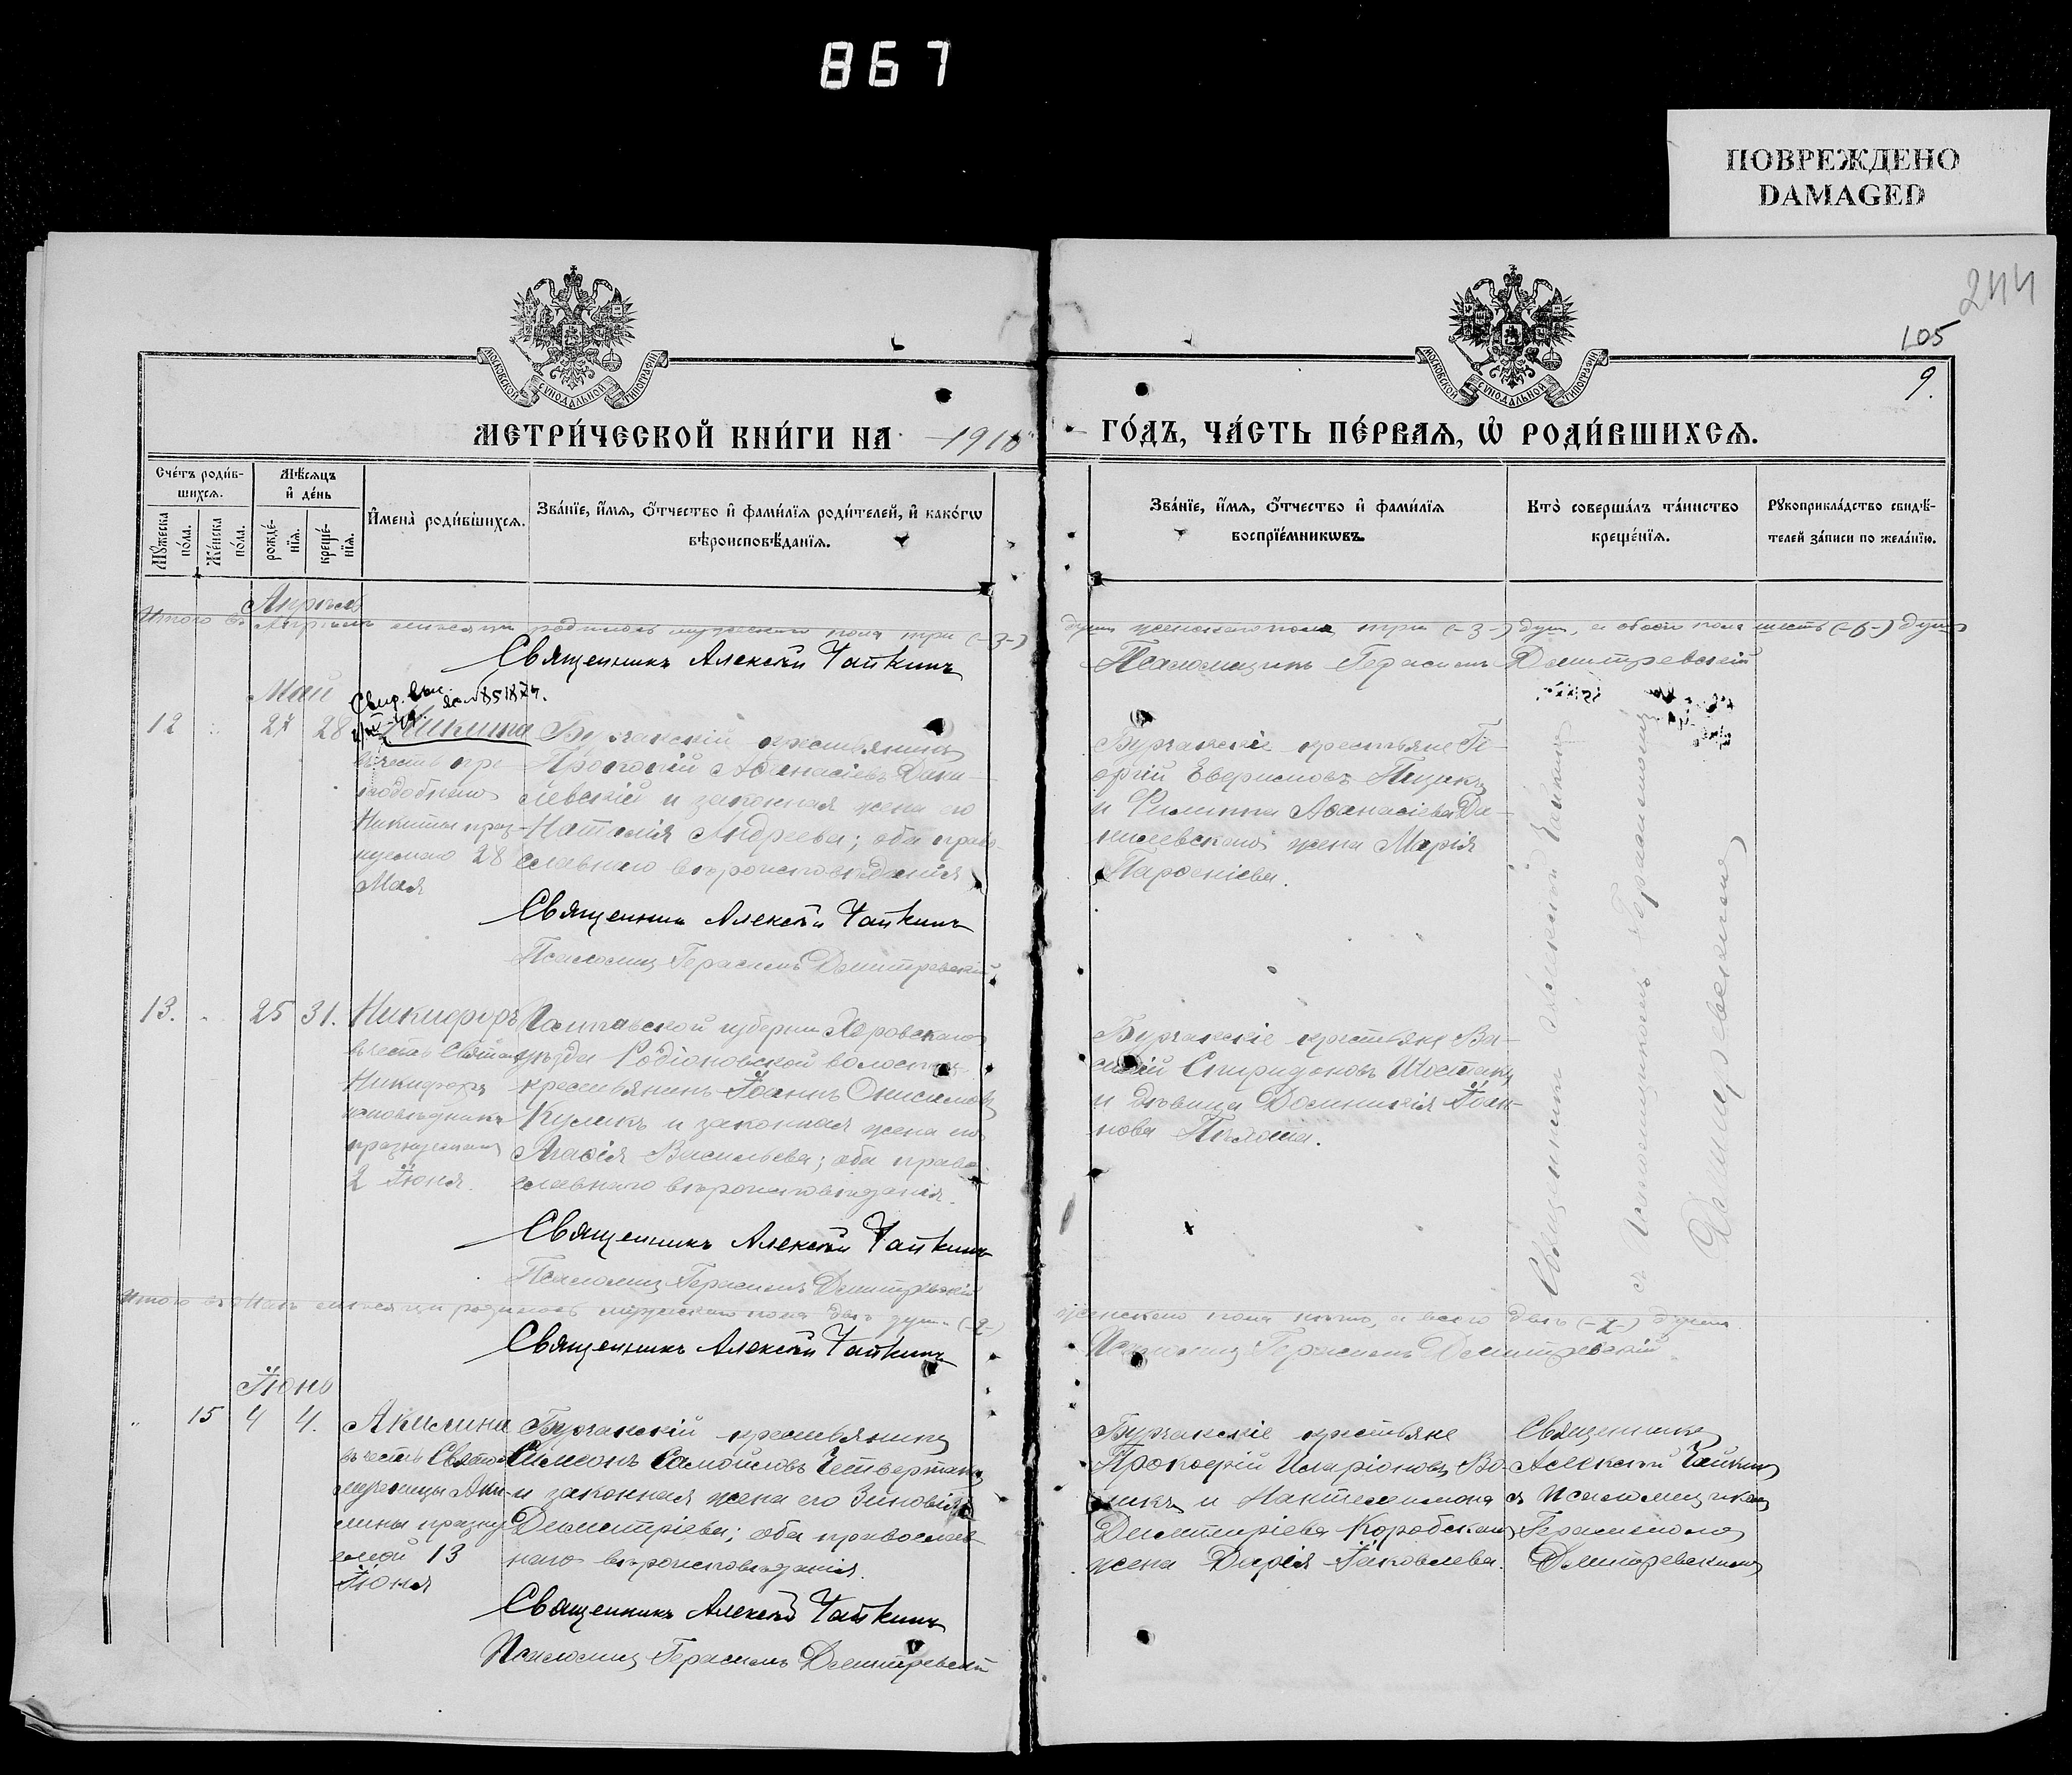 867
ПОВРЕЖДЕНО
DAMAGED
244
105
9.
МОСКОВСКОЙ СѴНОДАЛЬНОЙ ТИПОГРАФІИ
МОСКОВСКОЙ СѴНОДАЛЬНОЙ ТИПОГРАФІИ
МЕТРИ́ЧЕСКОЙ КНИ́ГИ НА 1916
ГО́ДЪ, ЧА́СТЬ ПЕ́РВАѦ, Ѡ РОДИ́ВШИХСѦ.
Сче́тъ роди́в-
шихсѧ.
Мѣ́сѧцъ
и҆ де́нь
Мꙋ́жеска
по́ла.
Же́нска
по́ла.
рожде́-
нїѧ.
креще́-
нїѧ.
И҆мена̀ роди́вшихсѧ.
Зва́нїе, и҆́мѧ, ѻ҆́тчество и҆ фами́лїѧ роди́телей, и҆ како́гѡ
вѣроисповѣ́данїѧ.
Зва́нїе, и҆́мѧ, ѻ҆́тчество и҆ фами́лїѧ
воспрїе́мникѡвъ.
Кто̀ соверша́лъ та́инство
креще́нїѧ.
Рꙋкоприкла́дство свидѣ́-
телей за́писи по жела́нїю.
Апрѣль
Итого въ Апрѣлѣ мѣсяцѣ родилось мужескаго пола три (-3-)
душ женскаго пола три (-3-) душ, а обоего пола шесть (-6-) душъ
Священникъ Алексѣй Чайкинъ
Псаломщикъ Герасимъ Димитревскій
Май
Свид. выд.
12 27 28 Никита
въ честь пре-
подобнаго
Никиты праз-
нуемаго 28
Мая
Бурчакскій крестьянинъ
Прокопій Аѳанасіевъ Дани-
левскій и законная жена его
Наталія Андреева; оба право-
славнаго вѣроисповѣданія
Священникъ Алексѣй Чайкинъ
Псаломщ Герасимъ Димитревскій
Бурчакскіе крестьяне Ге-
оргій Пащукъ
и Филиппа Аѳанасіева Да-
нилевскаго жена Марія
Парѳеніева.
13. 25 31. Никифоръ
въ честь Святаго
Никифора
исповѣдника
празнуемаго
2 Іюня.
Полтавской губерніи
уѣзда Родіоновской волости
крестьянинъ Іоаннъ Онисимовъ
Куликъ и законная жена его
Агаѳія Васильева; оба право-
славнаго вѣроисповѣданія.
Священникъ Алексѣй Чайкинъ
Псаломщ Герасимъ Димитревскій
Бурчакскіе крестьяне Ва-
силій Спиридоновъ Шостакъ
и дѣвица Домникія Іоан-
нова
Священникъ Алексѣй Чайкинъ
съ псаломщикомъ Герасимомъ
Димитревскимъ
Итого въ Маѣ мѣсяцѣ родилось мужскаго пола двѣ души (-2-)
женскаго пола нѣтъ, а всего двѣ (-2-) души.
Священникъ Алексѣй Чайкинъ
Псаломщ Герасимъ Димитревскій
Іюнь
15 4 4. Акилина
въ честь Святой
мученицы Аки-
лины празну-
емой 13
Іюня
Бурчакскій крестьянинъ
Симеонъ Самойловъ Четвертакъ
и законная жена его Зиновія
Димитріева; оба православ-
наго вѣроисповѣданія.
Священникъ Алексѣй Чайкинъ
Псаломщ Герасимъ Димитревскій
Бурчакскіе крестьяне
Прокофій Иларіоновъ Во-
и Пантелеимона
Димитріева Коробскаго
жена Дарія Іаковлева.
Священникъ
Алексѣй Чайкинъ
съ псаломщикомъ
Герасимомъ
Димитревскимъ